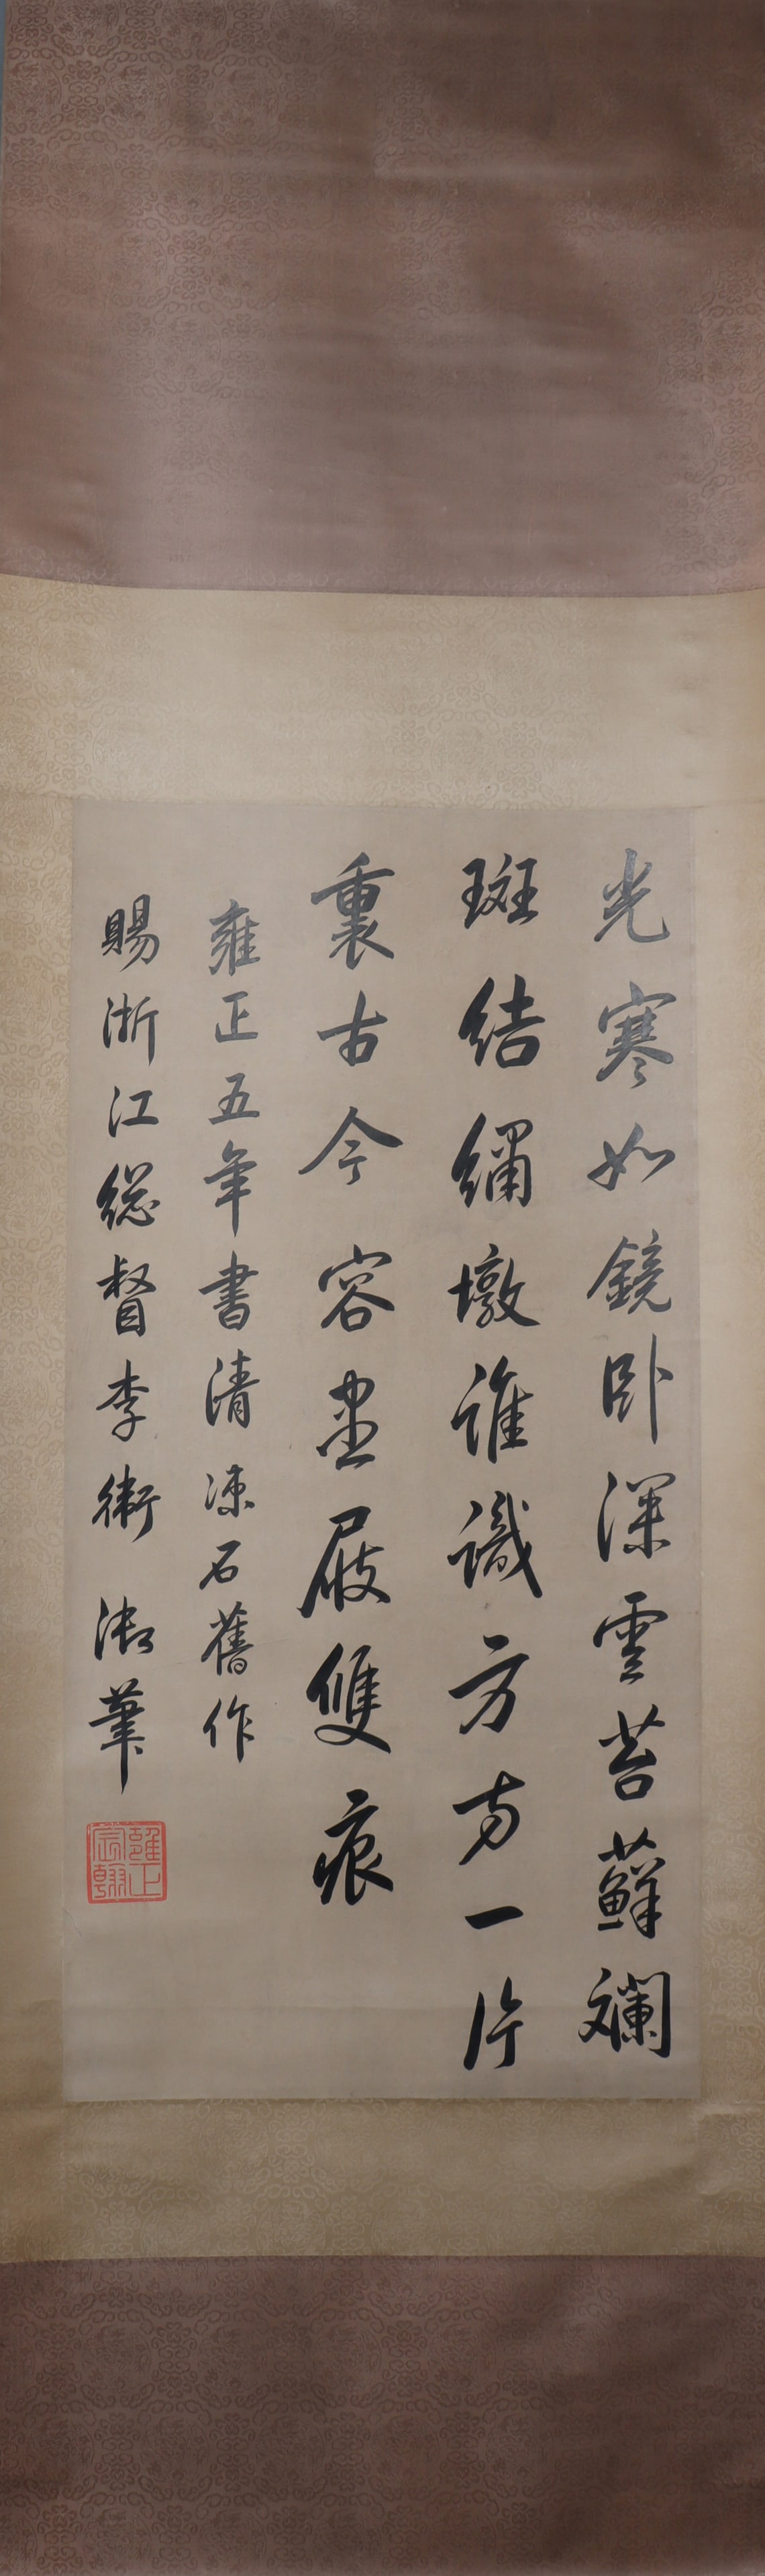 光寒如鏡卧深雲苔蘚斕
斑結繡墩誰識方方一片
裏古今容盡屐雙痕
雍正五年書清涼石舊作
賜浙江總督李衛 御筆
雍正宸翰